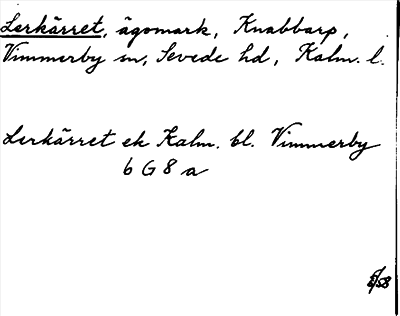 Lerkärret, ägomark, Knabbarp,
Vimmerby sn, Sevede hd, Kalm. l.
Lerkärret ek Kalm. bl. Vimmerby
6 G 8 a